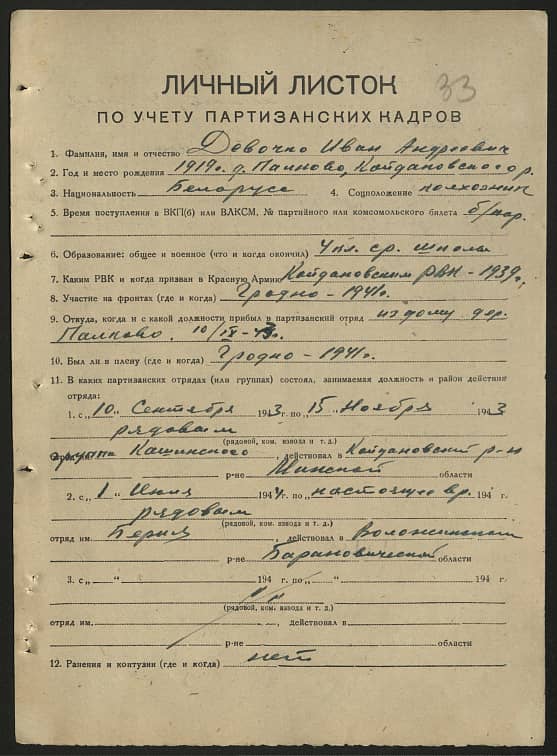 33
ЛИЧНЫЙ ЛИСТОК
ПО УЧЕТУ ПАРТИЗАНСКИХ КАДРОВ
1. Фамилия, имя и отчество Девочко Иван Андреевич
2. Год и место рождения 1919 г. д. Палково, Койдановского р.
3. Национальность Белорусс 4. Соцположение колхозник
5. Время поступления в ВКП(б) или ВЛКСМ, № партийного или комсомольского билета б/пар.
6. Образование: общее и военное (что и когда окончил) 4 кл. ср. школы
7. Каким РВК и когда призван в Красную Армию Койдановским РВК - 1939 г.
8. Участие на фронтах (где и когда) Гродно - 1941 г.
9. Откуда, когда и с какой должности прибыл в партизанский отряд из дому дер.
Палково. 10/IX-43 г.
10. Был ли в плену (где и когда) Гродно - 1941 г.
11. В каких партизанских отрядах (или группах) состоял, занимаемая должность и район действия
отряда:
1. с „10„ Сентября 1943 г. по „15„ Ноября 1943
рядовым
(рядовой, ком. взвода и т. д.)
группа Кашинского, действовал в Койдановский р-н
р-не Минской области
2. с „1„ Июля 1944 г. по „настоящее вр. 194 г.
рядовым
(рядовой, ком. взвода и т. д.)
отряд им. Берия, действовал в Воложинском
р-не Барановической области
3. с „ “ 194 г. по „ “ 194 г.
(рядовой, ком. взвода и т. д.)
отряд им. , действовал в
р-не области
12. Ранения и контузии (где и когда) нет